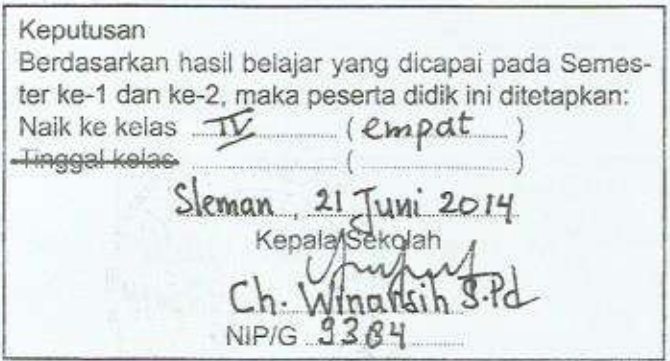 Keputusan
Berdasarkan hasil belajar yang dicapai pada Semes-
ter ke-1 dan ke-2, maka peserta didik ini ditetapkan:
Naik ke kelas IV ( empat )
Tinggal kelas ( )
Sleman, 21 Juni 2014
Kepala Sekolah
Ch. Winarsih S.Pd
NIP/G 9384